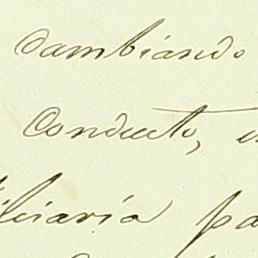 cambiando
conducto,
iliaria pa